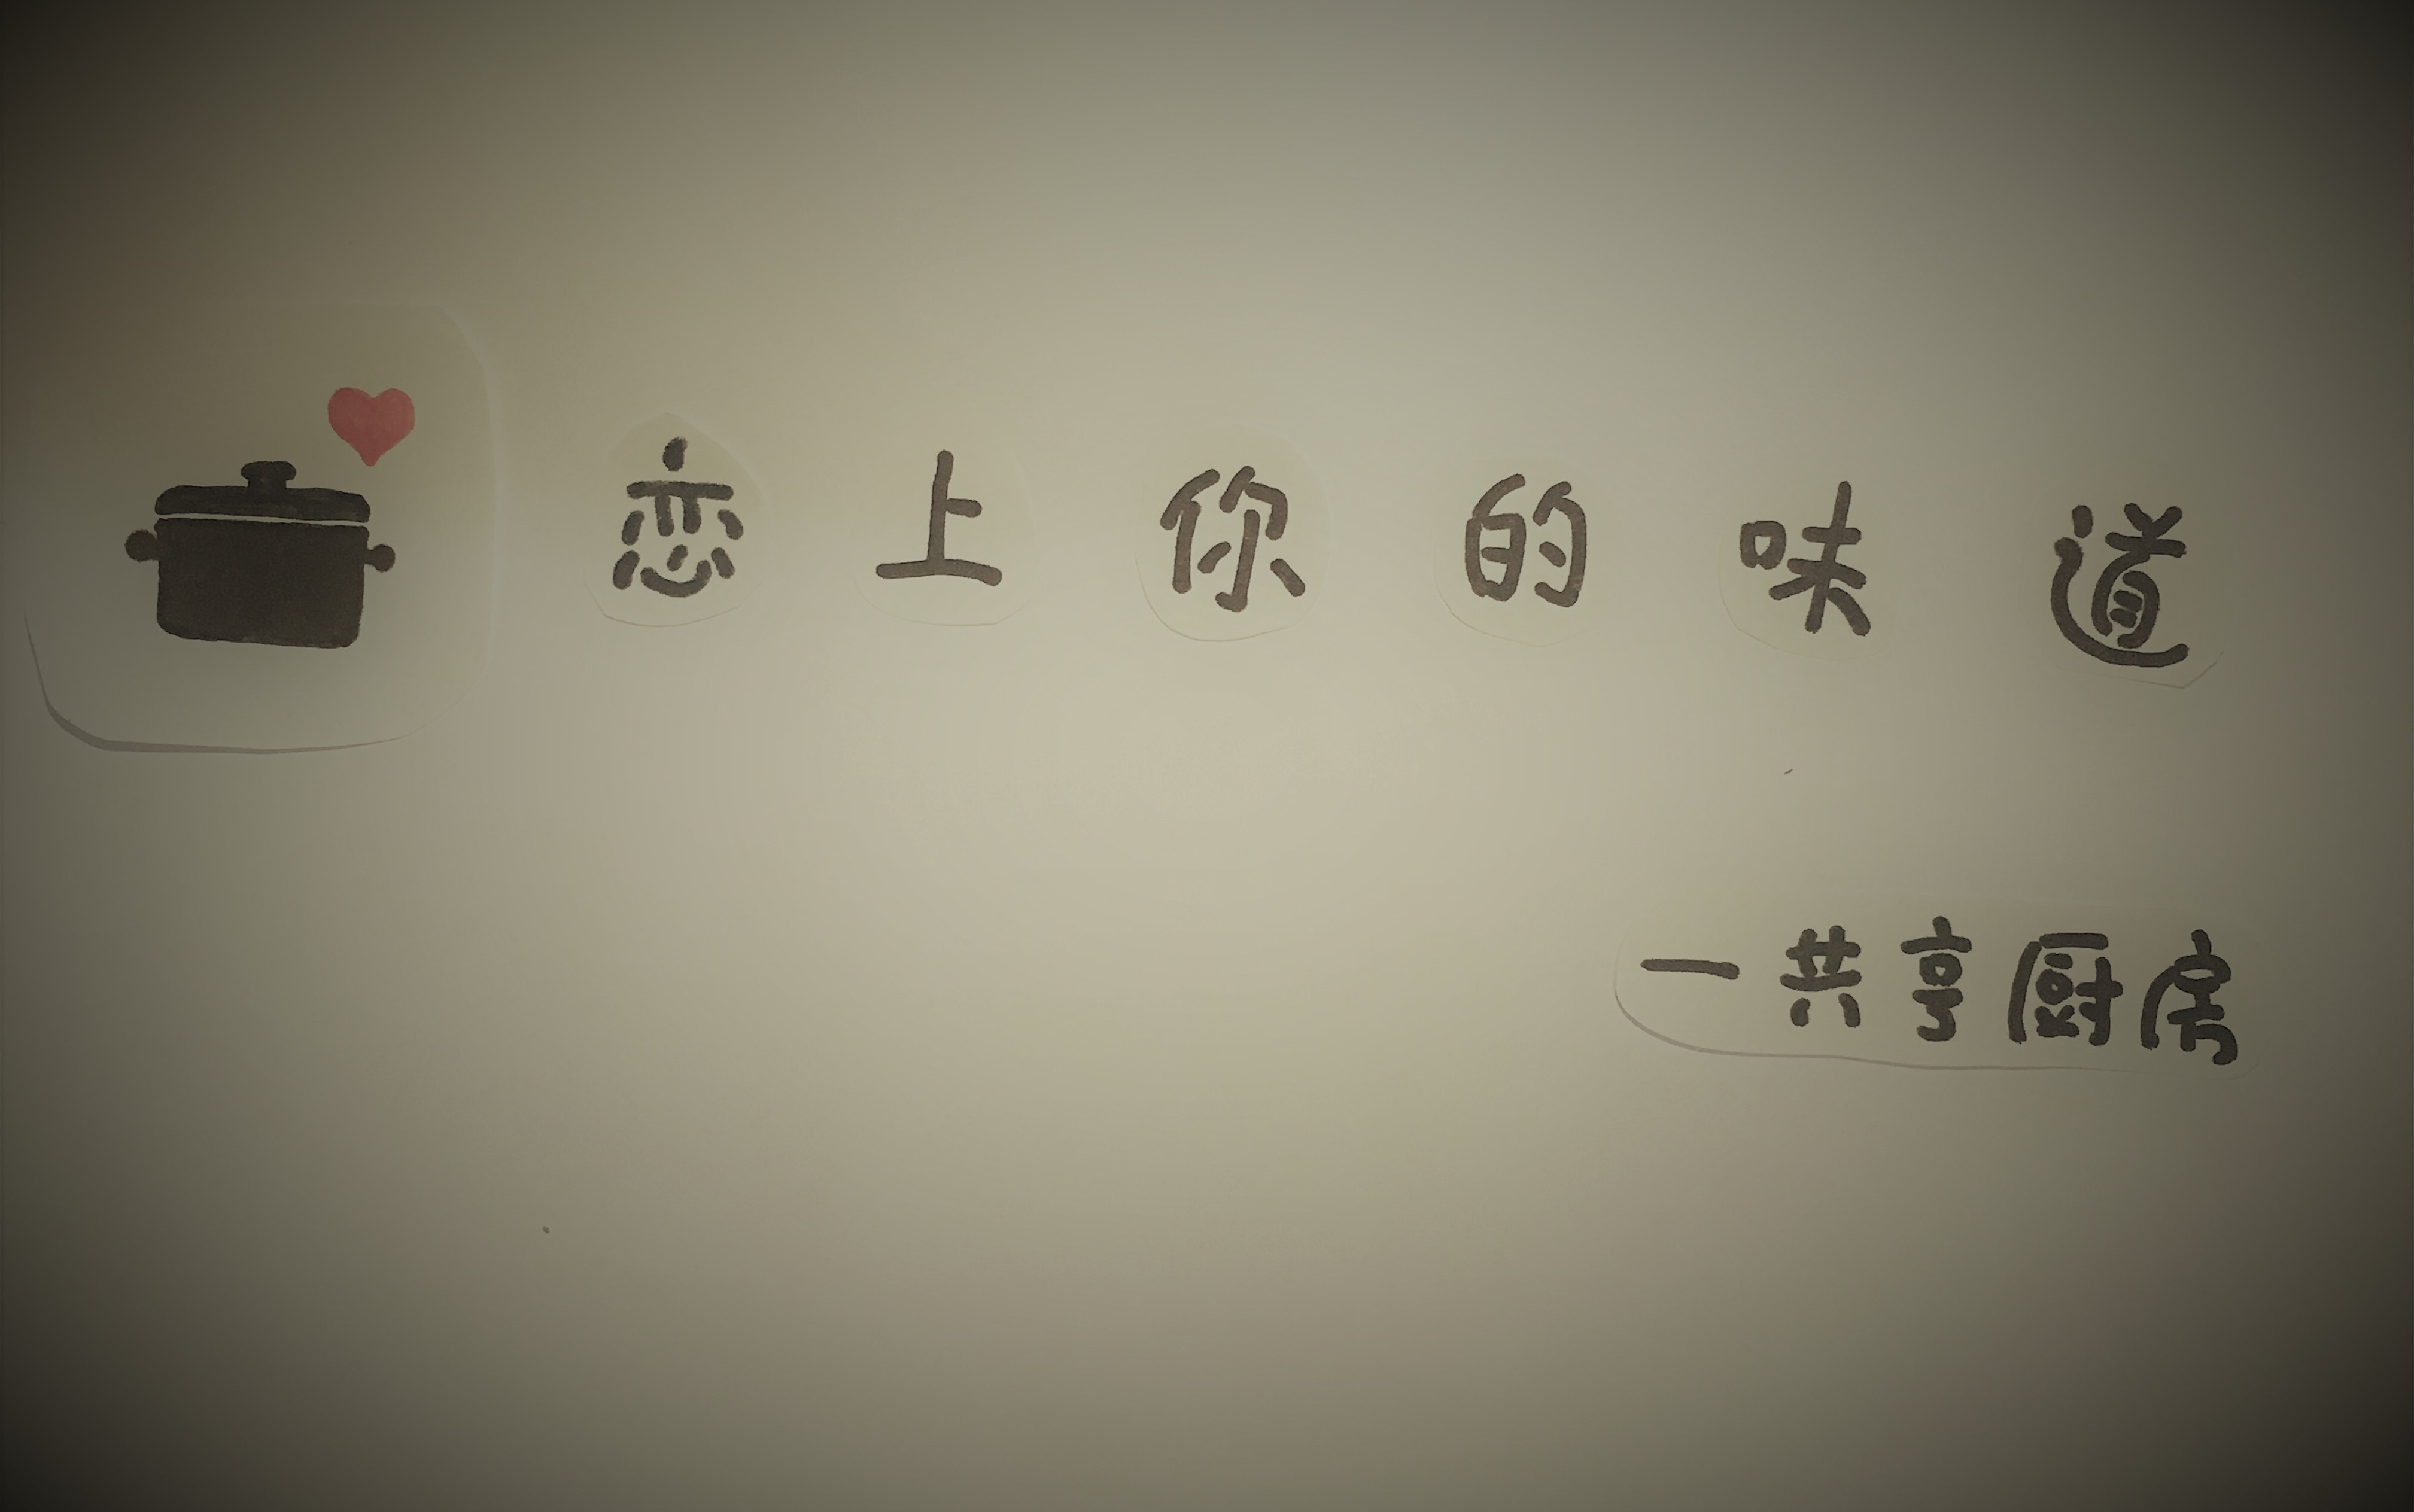 恋上你的味道
一共享厨房